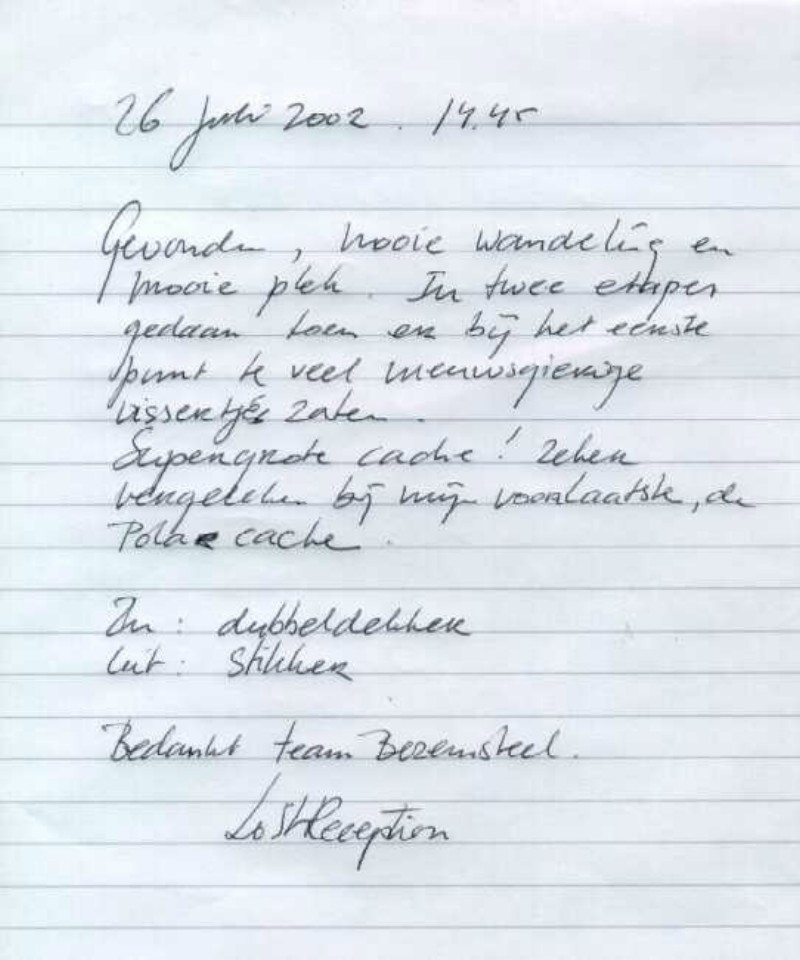 26 Juli 2002. 14.45
Gevonden, mooie wandeling en
mooie plek. In twee etappes
gedaan toen er bij het eerste
punt te veel nieuwsgierige
vissertjes zaten.
Supergrote cache! Zeker
vergeleken bij mijn voorlaatste, de
Polar cache.
In: dubbeldekker
Uit: Stikker
Bedankt team Bezemsteel.
LostReception